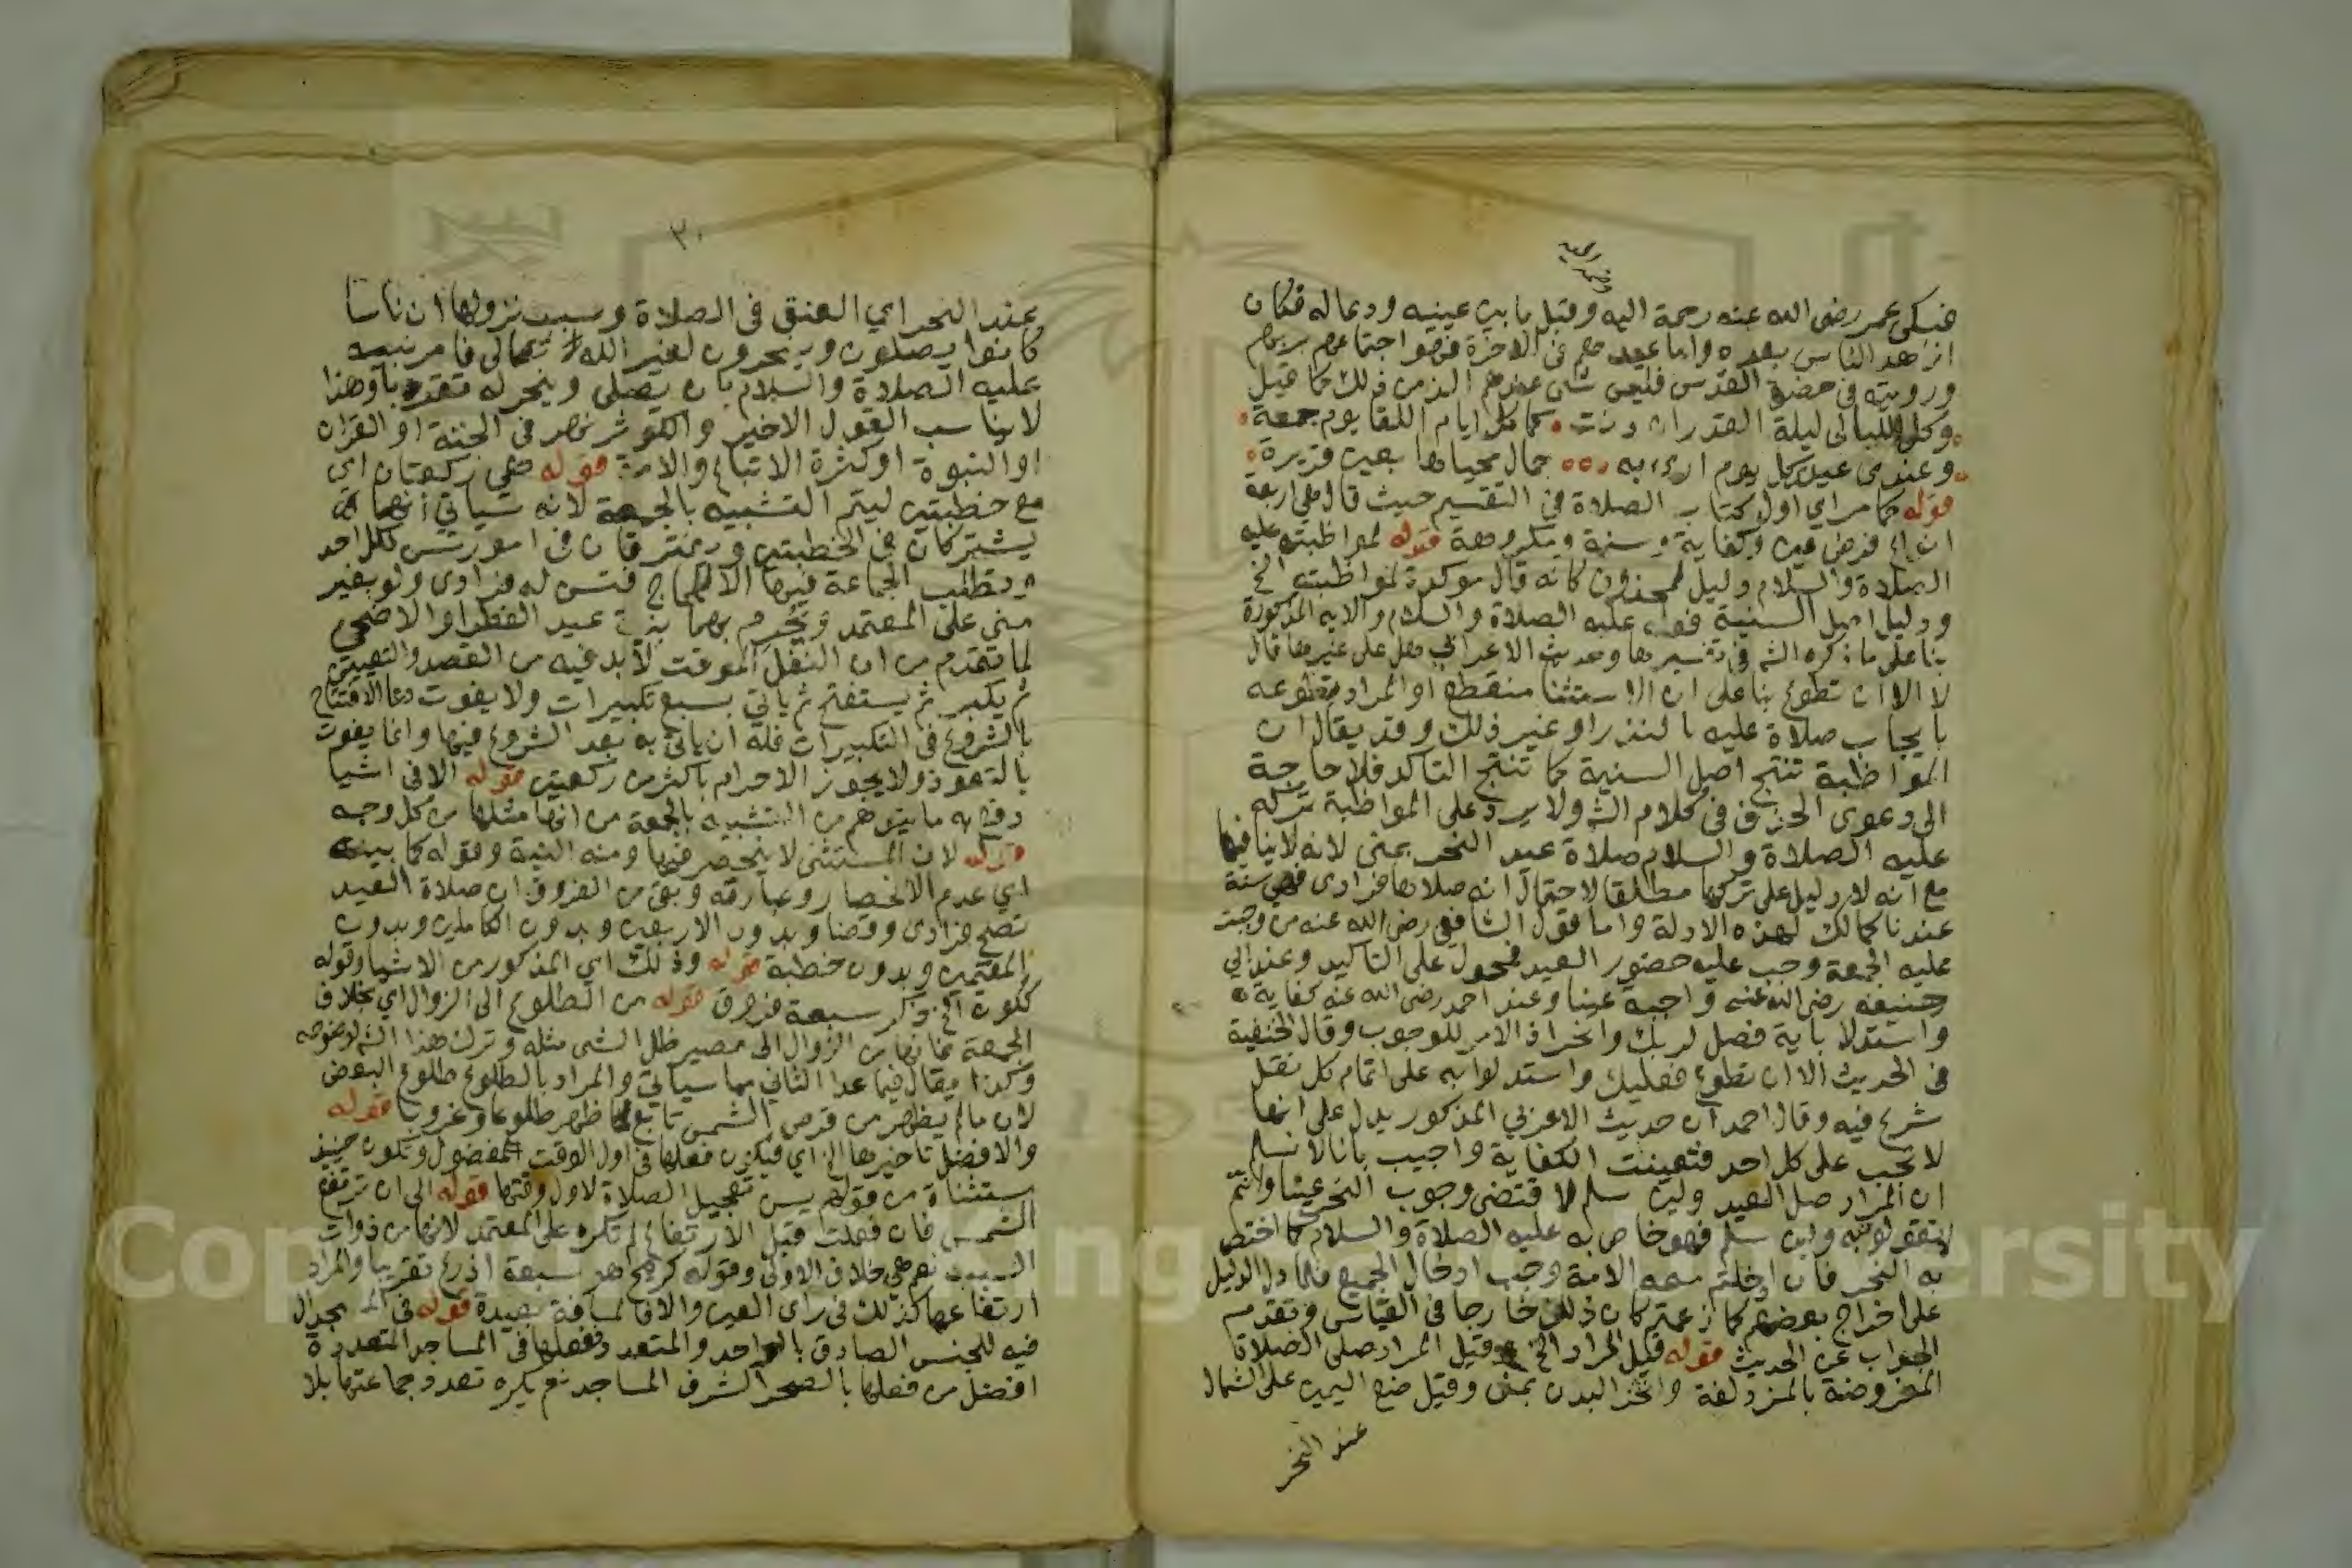 وضمه اليه
فبكى عمر رضى الله عنه رحمة اليه وقبل ما بين عينيه ودعا له فكان
ازهد الناس بعده واما عيدهم في الاخرة فهو اجتماعهم بربهم
ورويته في حضرة القدس فليس شى عندهم الذ من ذلك كما قيل
وكل الليالى ليلة القدر ان دنت كما كل ايام اللقا يوم جمعة
وعندى عيد كل يوم ارى به جمال محياها بعين قريرة
قوله كما مر اي اول كتاب الصلاة في التقسيم حيث قال هي اربعة
انواع فرض عين وكفاية وسنة ومكروهة قوله لمواظبته عليه
الصلاة والسلام دليل لمحذوف كانه قال موكدة لمواظبته الخ
ودليل اصل السنية قوله عليه الصلاة والسلام والاية المذكورة
بنا على ما ذكره الش في تفسيرها وحديث الاعرابي هل على غيرها قال
لا الا ان تطوع بنا على ان الاستثنا منقطع او المراد تطوعه
بايجاب صلاة عليه بالنذر او غير ذلك وقد يقال ان
المواظبة تنتج اصل السنية كما تنتج التاكد فلا حاجة
الى دعوى الحذف في كلام الش ولا يرد على المواظبة تركه
عليه الصلاة والسلام صلاة عيد النحر بمنى لانه لا ينافيها
مع انه لا دليل على تركها مطلقا لاحتمال انه صلاها فرادى فهي سنة
عندنا كمالك لهذه الادلة واما قول الشافعي رضى الله عنه من وجبت
عليه الجمعة وجب عليه حضور العيد فمحمول على التاكيد وعند ابي
حنيفة رضى الله عنه واجبة عينا وعند احمد رضى الله عنه كفاية
واستدلا باية فصل لربك وانحر اذ الامر للوجوب وقال الحنفية
في الحديث الا ان تطوع فعليك واستدلوا به على اتمام كل نفل
شرع فيه وقال احمد ان حديث الاعربي المذكور يدل على انها
لا تجب على كل احد فتعينت الكفاية واجيب بانا لا نسلم
ان المراد صل العيد ولين سلم لاقتضى وجوب النحر عينا وانتم
لا تقولون به ولين سلم فهو خاص به عليه الصلاة والسلام كما اختص
به النحر فان ادخلتم معه الامة وجب ادخال الجميع فلما دل الدليل
على اخراج بعضهم كما زعمتم كان ذلك خارجا في القياس وتقدم
الجواب عن الحديث قوله قيل المراد الخ وقيل المراد صلى الصلاة
المفروضة بالمزدلفة وانحر البدن بمنى وقيل ضع اليمين على الشمال
عند النحر
٣٠
عند النحر اي العنق في الصلاة وسبب نزولها ان ناسا
كانوا يصلون وينحرون لغير الله تعالى فامر نبيه
عليه الصلاة والسلام بان يصلى وينحر له تقربا وهذا
لا يناسب القول الاخير والكوثر نهر في الجنة او القران
او النبوة او كثرة الاتباع والامة قوله هي ركعتان اى
مع خطبتين ليتم التشبيه بالجمعة لانه سياتي انهما
يشتركان في الخطبتين ويفترقان في امور تسن لكل احد
وتطلب الجماعة فيها الا للحاج فتسن له فرادى ولو بغير
منى على المعتمد ويحرم بهما بنية عيد الفطر او الاضحى
لما تقدم من ان النفل الموقت لا بد فيه من القصد والتعيين
ثم يكبر ثم يستفتح ثم ياتي بسبع تكبيرات ولا يفوت دعا الافتتاح
بالشروع في التكبيرات فله ان ياتي به بعد الشروع فيها وانما يفوت
بالتعوذ ولا يجوز الاحرام باكثر من ركعتين قوله الا في اشيا
دفع به ما يتوهم من التشبيه بالجمعة من انها مثلها من كل وجه
قوله لان المستثنى لا ينحصر فيها ومنه النية وقوله كما بينه
اي عدم الانحصار وعبارته وبقى من الفروق ان صلاة العيد
تصح فرادى وقضا وبدون الاربعين وبدون الكاملين وبدون
المقيمين وبدون خطبة قوله وذلك اي المذكور من الاشيا وقوله
ككونه الخ ذكر سبعة فروق قوله من الطلوع الى الزوال اي بخلاف
الجمعة فانها من الزوال الى مصير ظل الشى مثله وترك هذا الش لوضوحه
وكذا يقال فيما عدا الثاني مما سياتي والمراد بالطلوع طلوع البعض
لان ما لم يظهر من قرص الشمس تابع لما ظهر طلوعا وغروبا قوله
والافضل تاخيرها الخ اي فيكون فعلها في اول الوقت المفضول وتكون حينئذ
مستثناة من قولهم يسن تعجيل الصلاة لاول وقتها قوله الى ان ترتفع
الشمس فان فعلت قبل الارتفاع لم تكره على المعتمد لانها من ذوات
السبب نعم هي خلاف الاولى وقوله كرمح هو سبعة اذرع تقريبا والمراد
ارتفاعها كذلك في راى العين والا فالمسافة بعيدة قوله في المسجد ال
فيه للجنس الصادق بالواحد والمتعدد ففعلها في المساجد المتعددة
افضل من فعلها بالصحرا لشرف المساجد نعم يكره تعدد جماعتها بلا